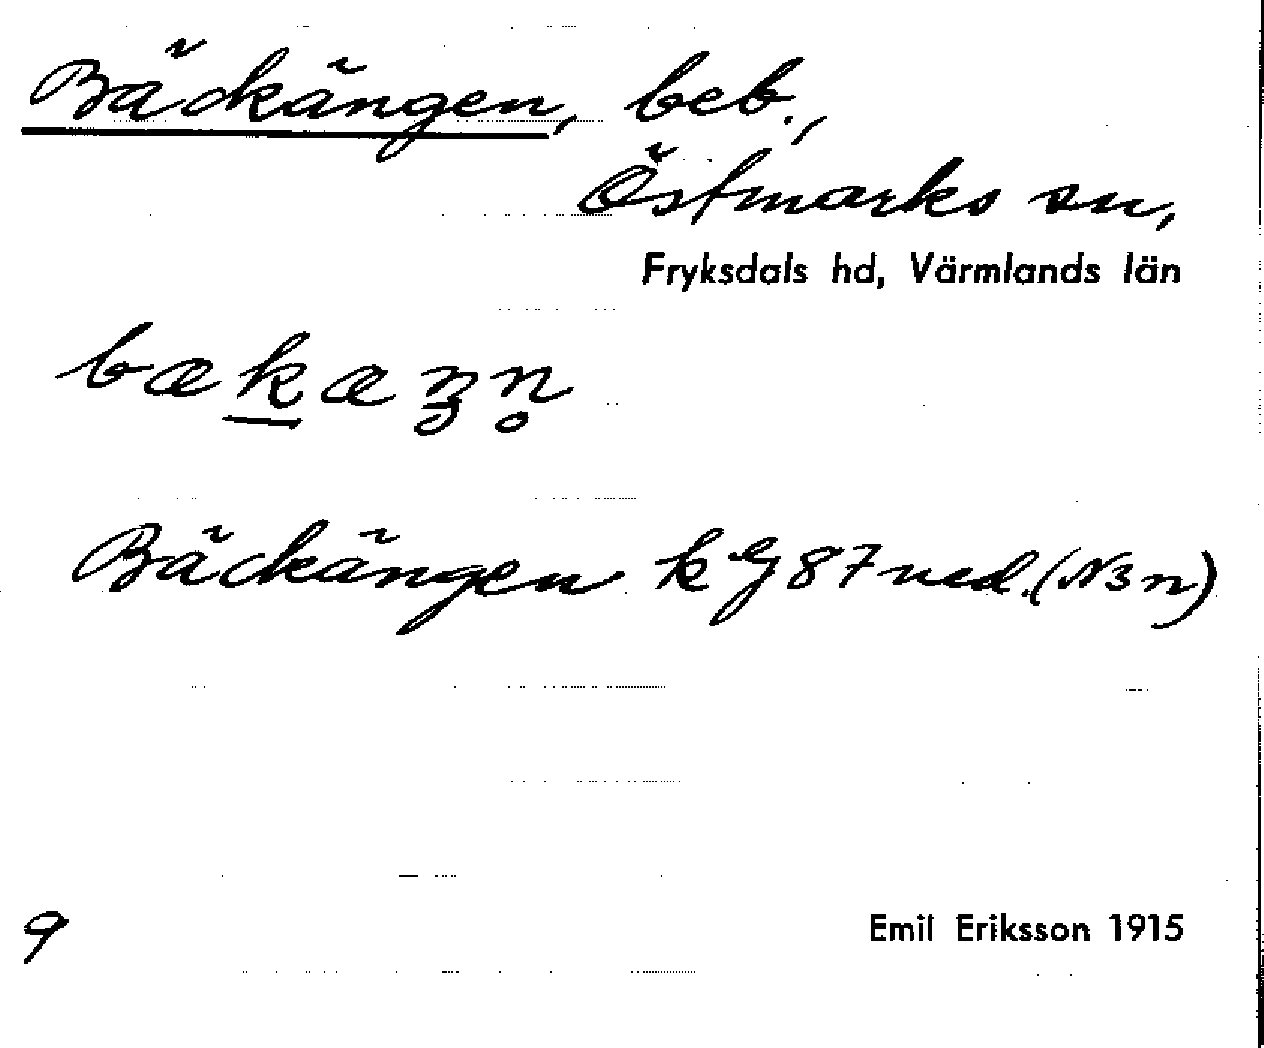 Bäckängen, beb.,
Östmarks sn,
Fryksdals hd, Värmlands län
bækæŋn̥
Bäckängen k G 87 ned. (N3n)
9
Emil Eriksson 1915